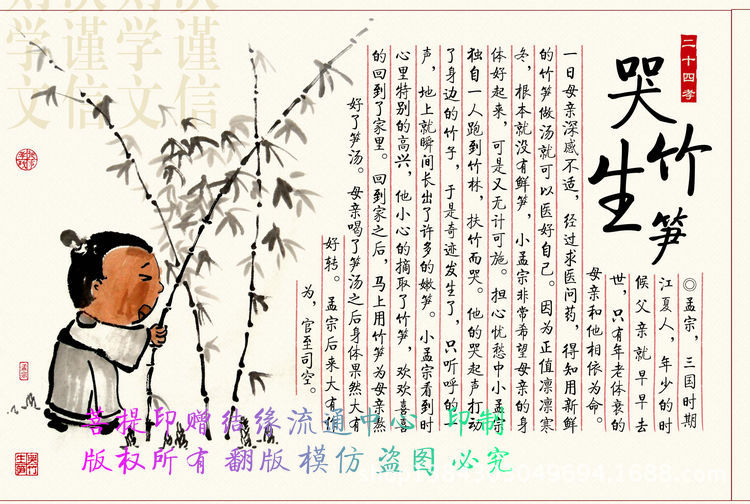 二十四孝
哭竹生笋
◎孟宗，三国时期
江夏人，年少的时
候父亲就早早去
世，只有年老体衰的
母亲和他相依为命。
一日母亲深感不适，经过求医问药，得知用新鲜
的竹笋做汤就可以医好自己。因为正值凛凛寒
冬，根本就没有鲜笋，小孟宗非常希望母亲的身
体好起来，可是又无计可施。担心忧愁中小孟宗
独自一人跑到竹林，扶竹而哭。他的哭起声打动
了身边的竹子，于是奇迹发生了，只听呼的一
声，地上就瞬间长出了许多的嫩笋。小孟宗看到时
心里特别的高兴，他小心的摘取了竹笋，欢欢喜喜
的回到了家里。回到家之后，马上用竹笋为母亲熬
好了笋汤。母亲喝了笋汤之后身体果然大有
好转。孟宗后来大有作
为，官至司空。
学谨学谨
文信文信
菩提印赠结缘流通中心 印制
版权所有 翻版模仿 盗图 必究
049694.1688.com